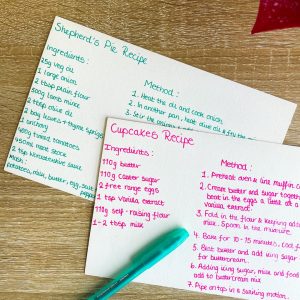 Shepherd's Pie Recipe
Ingredients:
25g veg oil
1 large onion
2 tbsp plain flour
500g lamb mince
2 tbsp olive oil
2 bay leaves + thyme sprigs
1 anchovy
400g tinned tomatoes
450ml meat stock
2 tbsp Worcestershire sauce
Mash:
potatoes, milk, butter, egg, salt
pepper
Method:
1. Heat the oil and cook onion.
2. In another pan, heat olive oil & fry the
3. Stir the
Cupcakes Recipe
Ingredients:
110g butter
110g caster sugar
2 free range eggs
1 tsp vanilla extract
110g self-raising flour
1-2 tbsp milk
Method:
1. Preheat oven & line muffin
2. Cream butter and sugar together
beat in the eggs a little at a
vanilla extract.
3. Fold in the flour & adding
milk. Spoon in the mixture
4. Bake for 10-15 minutes,
5. Beat butter and add icing sugar
for buttercream.
6. Adding icing sugar, milk and food
add to buttercream mix
7. Pipe on top in a swirling motion.